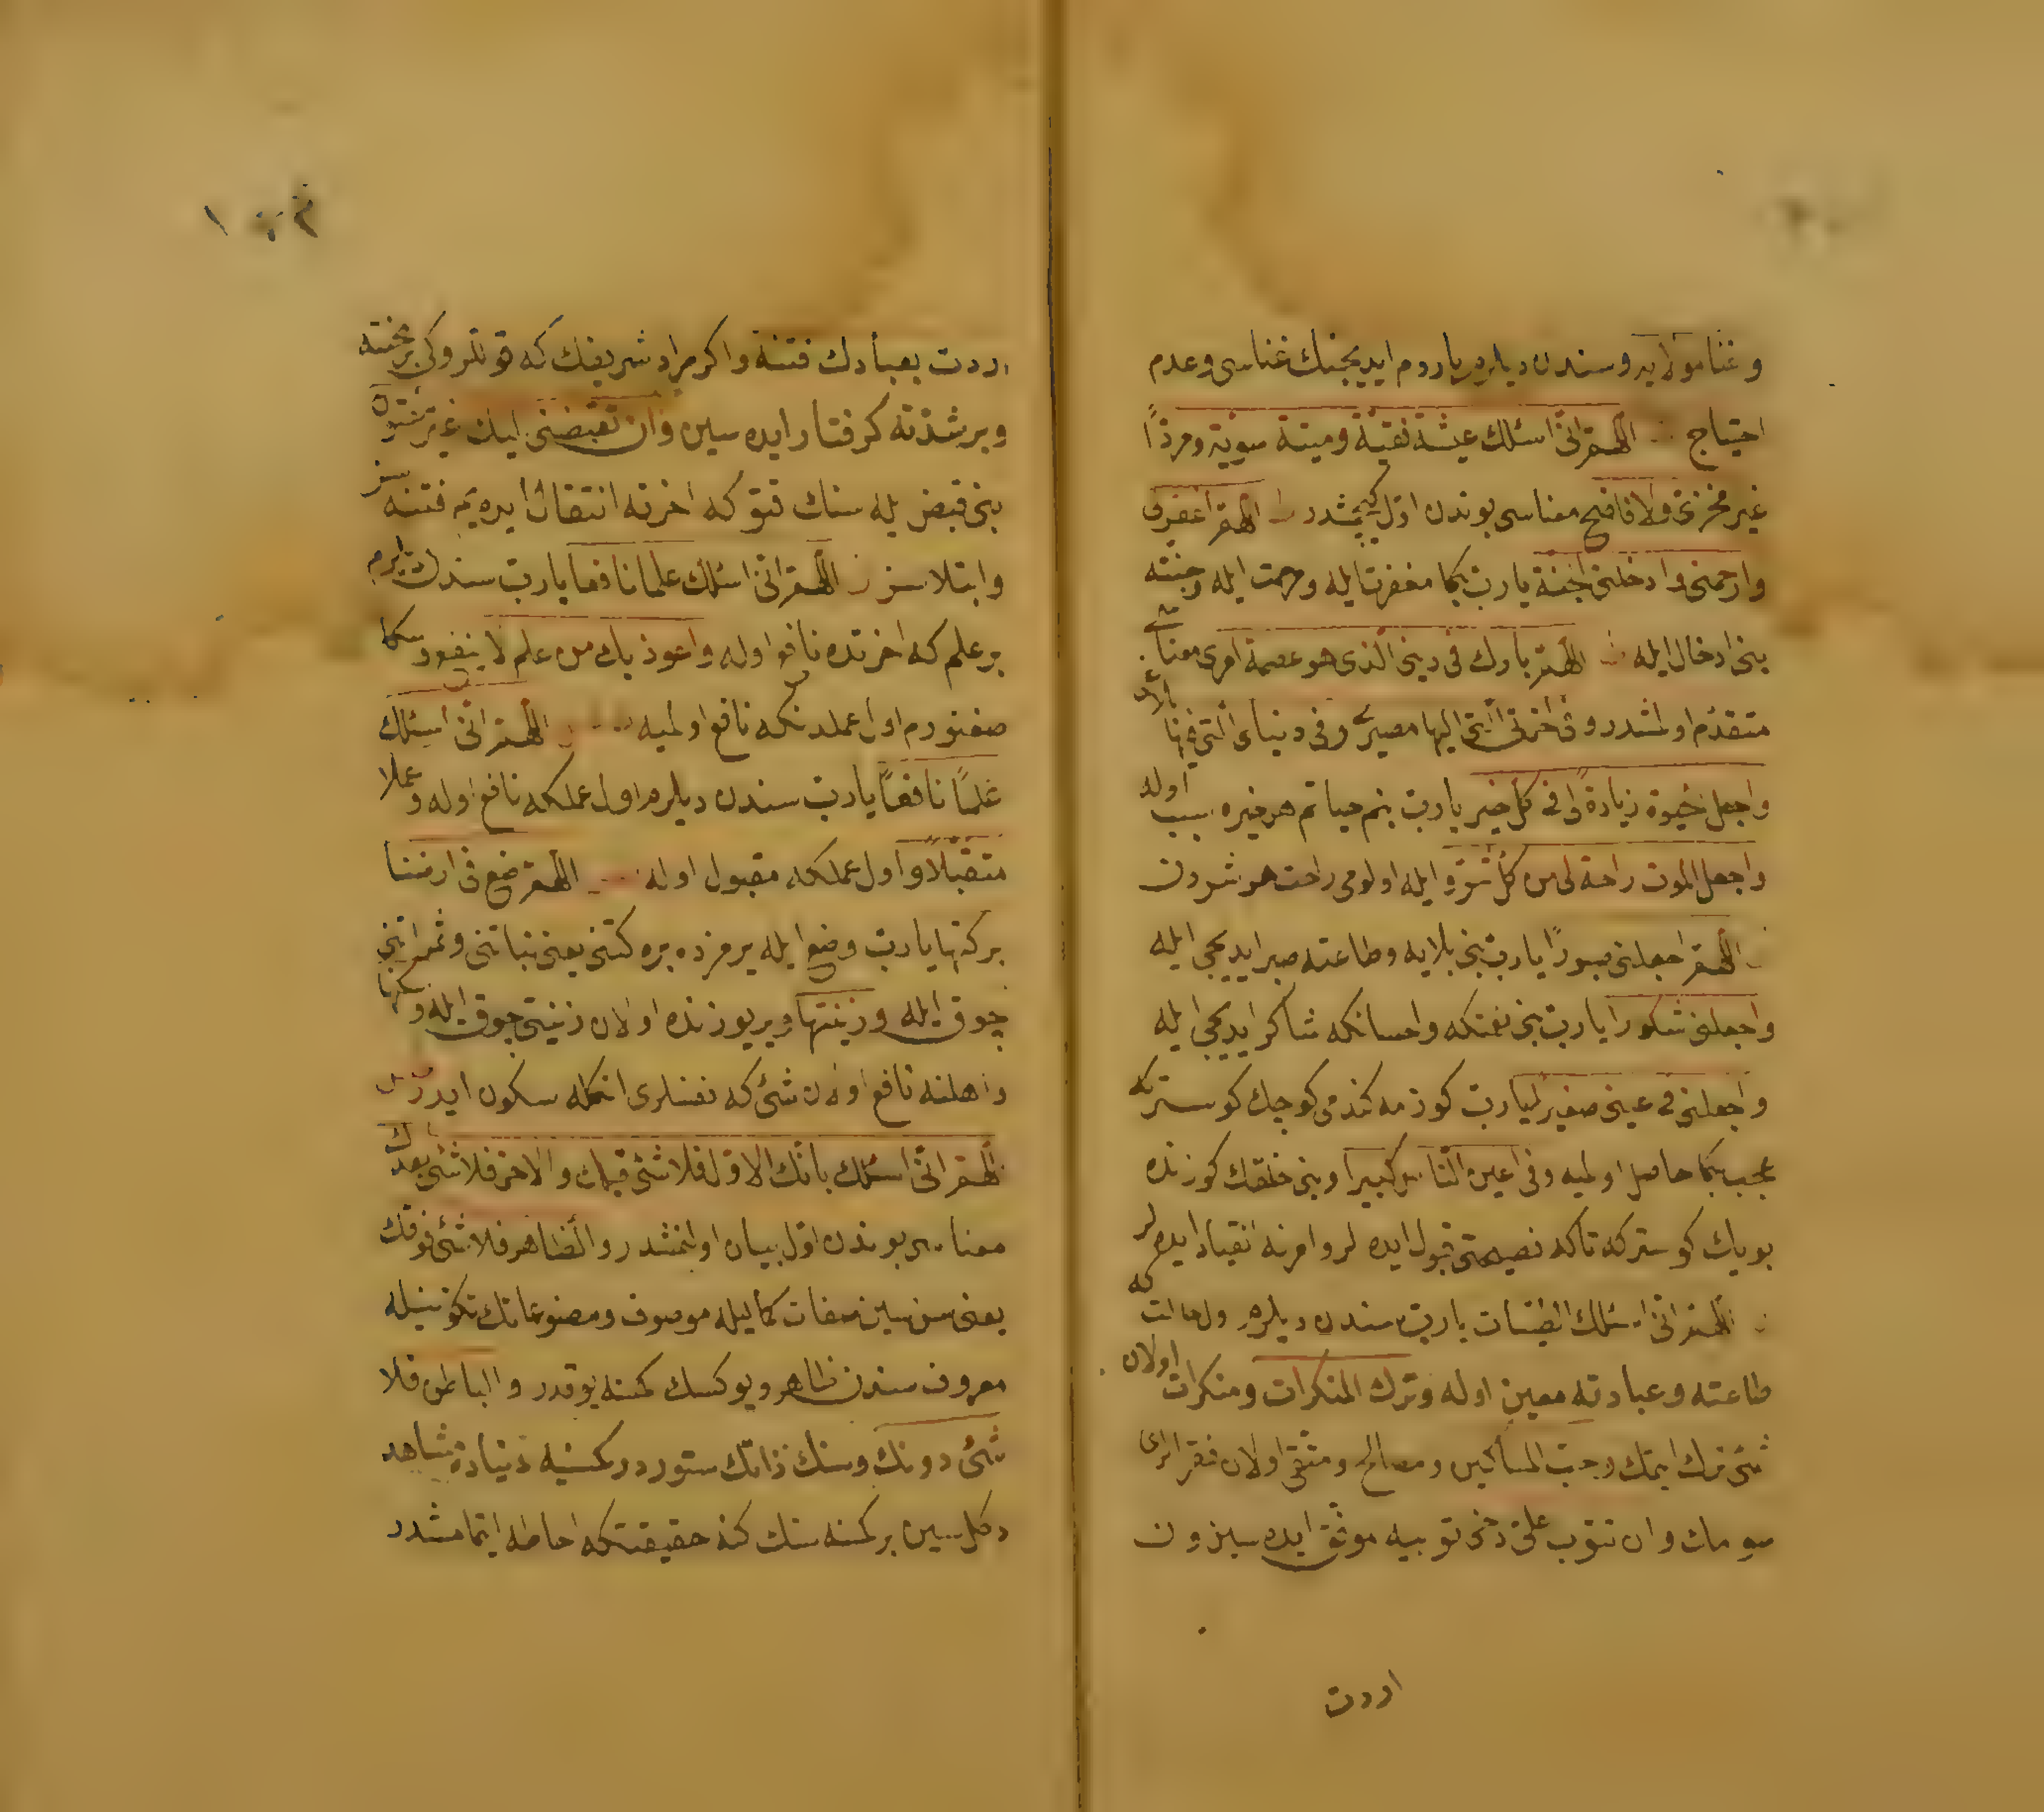 وغنا مولايه وسندن ديلرم ياردم ايديجينك غناسى وعدم
احتياج اللهم انى اسئلك عيشة نقية وميتة سوية ومردًا
غير مخزى ولا فاضح معناسى بوندن اول كچمشدر اللهم اغفرلى
وارحمنى وادخلنى الجنة يا رب بكا مغفرت ايله ومرحمت ايله وجنته
بنى ادخال ايله اللهم بارك فى دينى الذى هو عصمة امرى معناسى
متقدم اولمشدر وفى اخرتى التى اليها مصيرى وفى دنياى التى فيها بلاغى
واجعل حيوة زيادة لى فى كل خير يا رب بنم حياتم هر خيره سبب اوله
واجعل الموت راحة لى من كل شر وايله اولومى راحت هر شردن
اللهم اجعلنى صبورًا يا رب بنى بلايه وطاعته صبر ايديجى ايله
واجعلنى شكورا يا رب بنى نعمتكه واحسانكه شاكر ايديجى ايله
واجعلنى فى عينى صغيرا يا رب كوزمه كندمى كوچك كوستر كه
عجب بكا حاصل اولميه وفى اعين الناس كبيرا وبنى خلقك كوزنده
بويك كوستر كه تاكه نصيحتى قبول ايده لر وامرنه انقياد ايده لر
اللهم انى اسئلك الطيبات يا رب سندن ديلرم حلالت كه
طاعته وعبادته معين اوله وترك المنكرات ومنكرات اولان
شئ ترك ايتمك وحب المساكين ومصالح ومتقى اولان فقرالرى
سومك وان تتوب على دخى توبيه موفق ايده سين وان
اردت
اردت بعبادك فتنة واكر مراد شريفك كه قوللروكى بر محنته
وبر شدته كرفتار ايده سين وان تقبضنى اليك غير مفتون
بنى قبض ايله سنك قتوكه اخرته انتقال ايده يم فتنه سز
وابتلاسز اللهم انى اسئلك علما نافعا يا رب سندن ديلرم
بر علم كه اخرتده نافع اوله واعوذ بك من علم لا ينفع وسكا
صغنورم اول عملدنكه نافع اولميه اللهم انى اسئلك
علمًا نافعًا يا رب سندن ديلرم اول عملكه نافع اوله وعملا
متقبلًا واول عملكه مقبول اوله اللهم ضع فى ارضنا
بركتها يا رب وضع ايله يرمزده بركتنى يعنى نباتنى وثمراتنى
چوق ايله وزينتها ويريوزنده اولان زينتى چوق ايله وسكنها
واهلنه نافع اولان شئ كه نفسلرى انكله سكون ايدر
اللهم انى اسئلك بانك الاول فلا شئ قبلك والاخر فلا شئ بعدك
معناسى بوندن اول بيان اولنمشدر والظاهر فلا شئ فوقك
يعنى سن سين صفات كماليله موصوف ومصنوعاتك تكوينيله
معروف سندن ظاهر ويوكسك كمسنه يوقدر والباطن فلا
شئ دونك وسنك ذاتك مستور در كمسنيه دنياده مشاهد
دكل سين بر كمسنه سنك كنه حقيقتكه احاطه ايتمامشدر